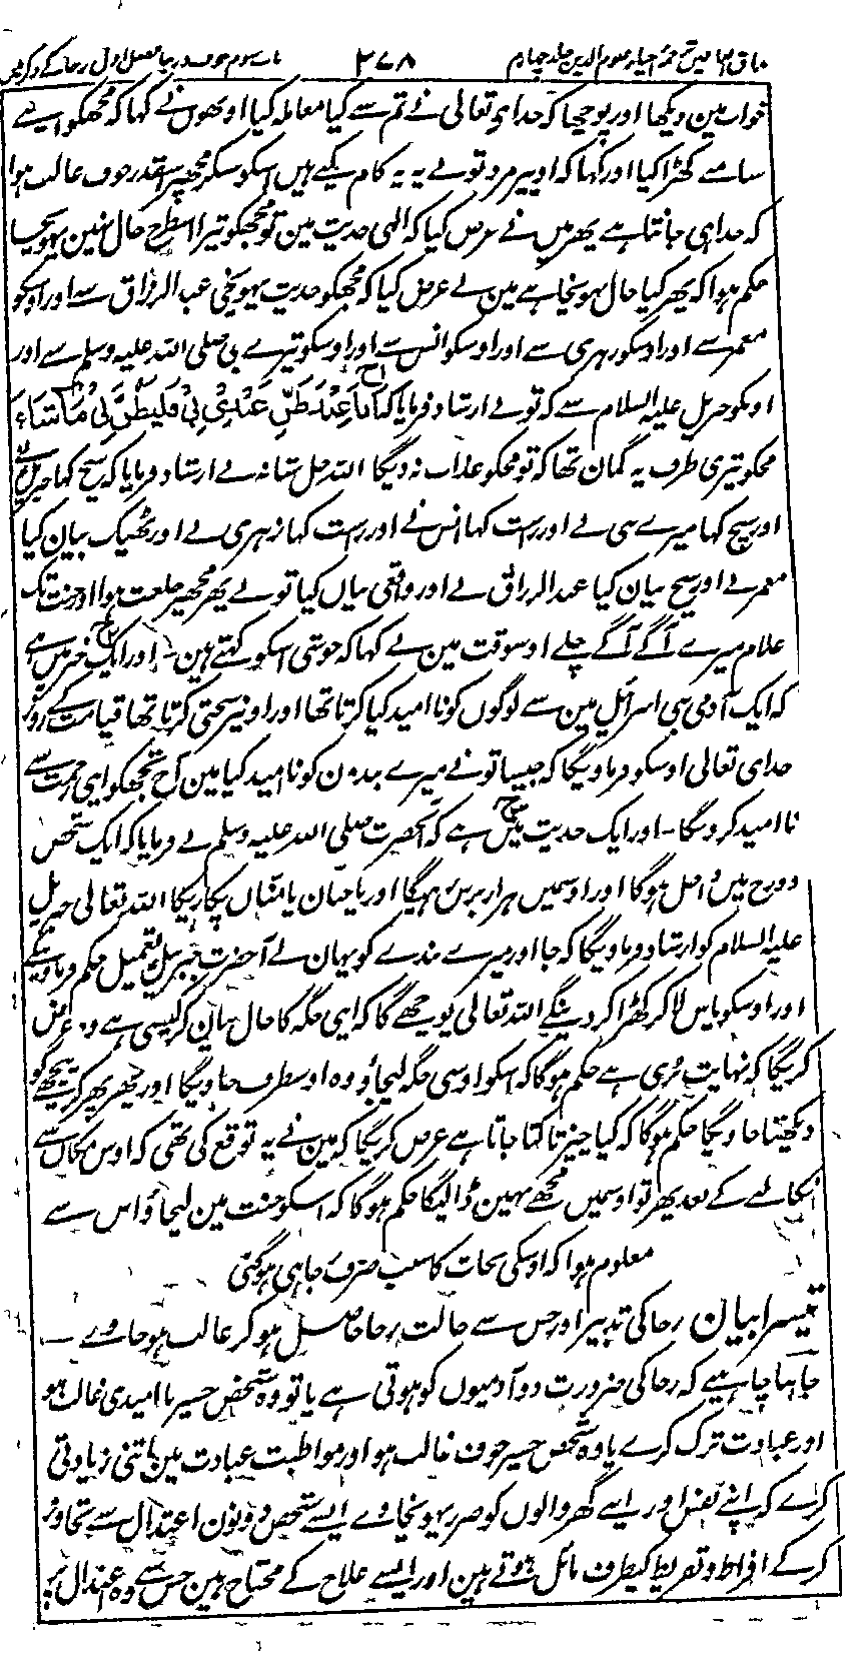 مذاق العارفین ترجمہ احیاء علوم الدین جلد چہارم ۲۷۸ باب سوم خوف و رجا فصل اول رجا کے ذکر میں
خواب مین دیکھا اور پوچھا کہ خدای تعالی نے تم سے کیا معاملہ کیا اونھون نے کہا کہ مجھکو اپنے
سامنے کھڑا کیا اور کہا کہ او پیر مرد تونے یہ یہ کام کیے ہیں اسکو سنکر مجھپر اسقدر خوف غالب ہوا
کہ خدا ہی جانتا ہے پھر میں نے عرض کیا کہ الہی حدیث مین تو مجھکو تیرا اسطرح حال نہین پہونچا
حکم ہوا کہ پھر کیا حال پہونچا ہے مین نے عرض کیا کہ مجھکو حدیث پہونچی عبد الرزاق سے اور اوسکو
معمر سے اور اوسکو زہری سے اور اوسکو انس سے اور اوسکو تیرے نبی صلی اللہ علیہ وسلم سے اور
اونکو جبریل علیہ السلام سے کہ تونے ارشاد فرمایا کہ اَنَا عِنْدَ ظَنِّ عَبْدِیْ بِیْ فَلْیَظُنَّ بِیْ مَا شَاءَ
مجکو تیری طرف یہ گمان تھا کہ تو مجکو عذاب نہ دیگا اللہ جل شانہ نے ارشاد فرمایا کہ سچ کہا جبریل نے
اور سچ کہا میرے نبی نے اور راست کہا انس نے اور راست کہا زہری نے اور ٹھیک بیان کیا
معمر نے اور سچ بیان کیا عبد الرزاق نے اور واقعی بیان کیا تونے پھر مجھپر خلعت ہوا اور جنت تک
غلام میرے آگے آگے چلے اوسوقت مین نے کہا کہ خوشی اسکو کہتے ہین۔ اور ایک خبر میں ہے
کہ ایک آدمی بنی اسرائیل مین سے لوگوں کو ناامید کیا کرتا تھا اور اونپر سختی کرتا تھا قیامت کے روز
خدای تعالی اوسکو فرماویگا کہ جیسا تونے میرے بندون کو ناامید کیا مین آج تجھکو اپنی رحمت سے
ناامید کرونگا۔ اور ایک حدیث میں ہے کہ آنحضرت صلی اللہ علیہ وسلم نے فرمایا کہ ایک شخص
دوزخ میں داخل ہوگا اور اوسمیں ہزار برس رہیگا اور یا حنان یا منان پکاریگا اللہ تعالی جبریل
علیہ السلام کو ارشاد فرماویگا کہ جا اور میرے بندے کو یہان لے آ حضرت جبریل تعمیل حکم فرماوینگے
اور اوسکو پاس لا کر کھڑا کر دینگے اللہ تعالی پوچھے گا کہ اپنی جگہ کا حال بیان کر کیسی ہے وہ عرض
کریگا کہ نہایت بُری ہے حکم ہوگا کہ اسکو اوسی جگہ لیجاؤ وہ اوسطرف جاویگا اور پھر پھر کر پیچھے کو
دیکھتا جاویگا حکم ہوگا کہ کیا چیز تاکتا جاتا ہے عرض کریگا کہ مین نے یہ توقع کی تھی کہ اوس مکان سے
نکالنے کے بعد پھر تو اوسمیں مجھے نہین ڈالیگا حکم ہوگا کہ اسکو جنت مین لیجاؤ اس سے
معلوم ہوا کہ اوسکی نجات کا سبب صرف رجا ہی ہوگئی
تیسرا بیان رجا کی تدبیر اور جس سے حالت رجا حاصل ہو کر غالب ہو جاوے
جاننا چاہیے کہ رجا کی ضرورت دو آدمیوں کو ہوتی ہے یا تو وہ شخص جسپر ناامیدی غالب ہو
اور عبادت ترک کرے یا وہ شخص جسپر خوف غالب ہو اور مواظبت عبادت مین اتنی زیادتی
کرے کہ اپنے نفس اور اپنے گھر والوں کو ضرر پہونچاوے ایسے شخص دونون اعتدال سے تجاوز
کرکے افراط و تفریط کیطرف مائل ہوتے ہین اور ایسے علاج کے محتاج ہین جس سے وہ اعتدال پر